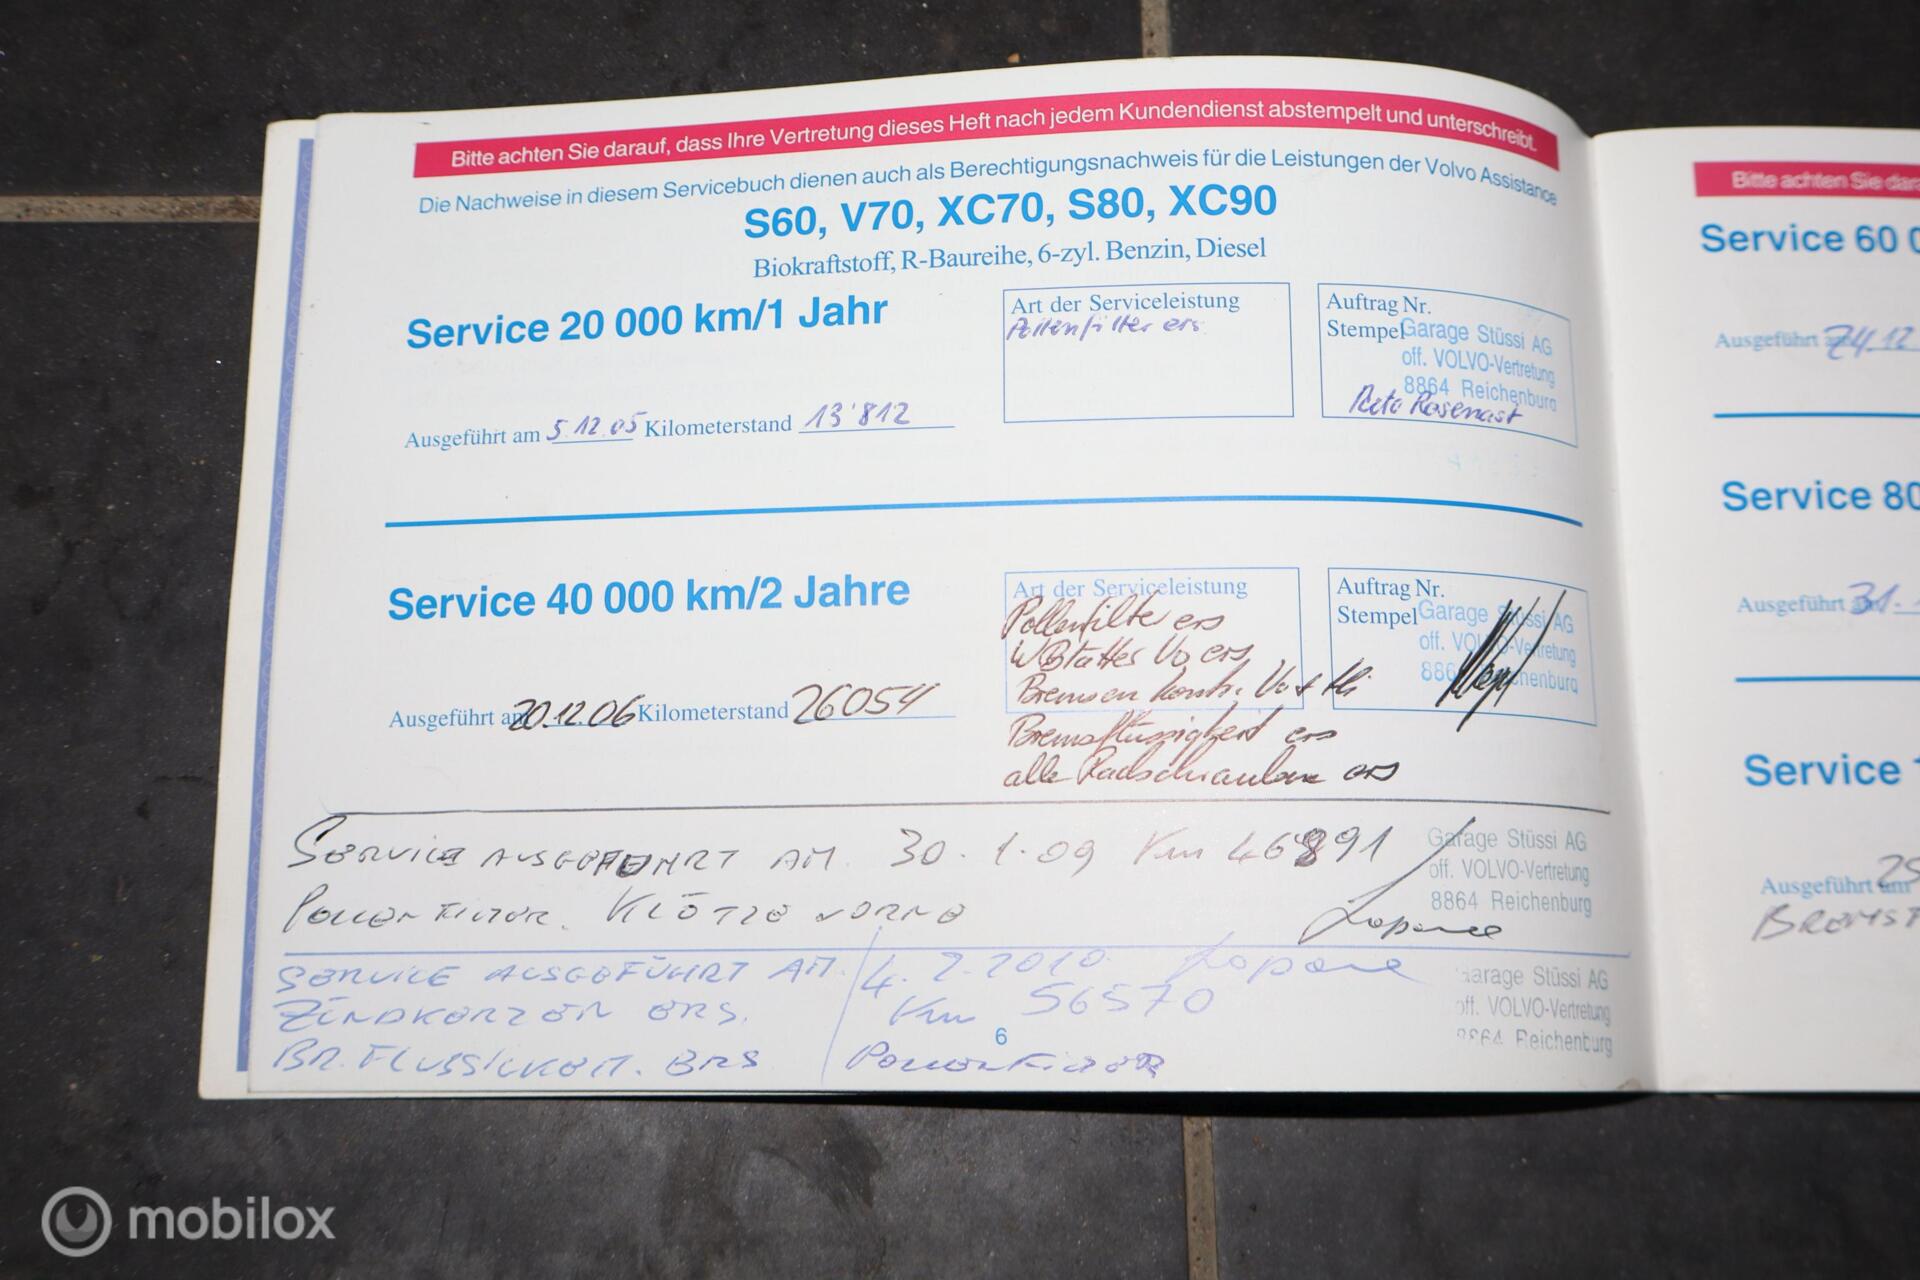 Bitte achten Sie darauf, dass Ihre Vertretung dieses Heft nach jedem Kundendienst abstempelt und unterschreibt.
Die Nachweise in diesem Servicebuch dienen auch als Berechtigungsnachweis für die Leistungen der Volvo Assistance
S60, V70, XC70, S80, XC90
Biokraftstoff, R-Baureihe, 6-zyl. Benzin, Diesel
Service 20 000 km/1 Jahr
Art der Serviceleistung
Pollenfilter ers
Auftrag Nr.
Stempel
Garage Stüssi AG
off. VOLVO-Vertretung
8864 Reichenburg
Reto Rosenast
Ausgeführt am 5.12.05 Kilometerstand 13'812
Service 40 000 km/2 Jahre
Art der Serviceleistung
Pollenfilter ers
WBlätter Vo ers
Bremsen kontr. Vo + Hi
Bremsflüssigkeit ers
alle Radschrauben ers
Auftrag Nr.
Stempel
Garage Stüssi AG
off. VOLVO-Vertretung
8864 Reichenburg
Ausgeführt am 20.12.06 Kilometerstand 26054
SERVICE AUSGEFÜHRT AM. 30.1.09 Km 46891
POLLENFILTER. KLÖTZE VORNE
Garage Stüssi AG
off. VOLVO-Vertretung
8864 Reichenburg
SERVICE AUSGEFÜHRT AM. 4.2.2010
ZÜNDKERZEN ERS. Km 56570
BR. FLÜSSIGKEIT. ERS POLLENFILTER
Garage Stüssi AG
off. VOLVO-Vertretung
8864 Reichenburg
6
Bitte achten Sie
Service 60
Ausgeführt am 24.12
Service 80
Ausgeführt am 31.
Service
Ausgeführt am 25
mobilox